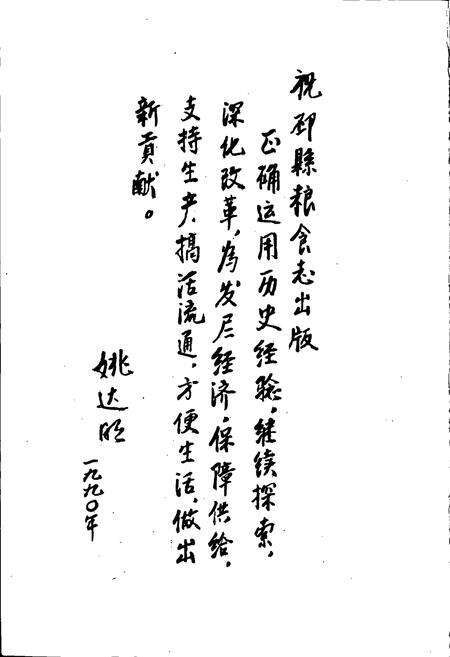 祝邳縣粮食志出版
正确运用历史经验，继续探索，
深化改革，为发展经济，保障供给，
支持生产，搞活流通，方便生活，做出
新貢献。
姚达明
一九九〇年